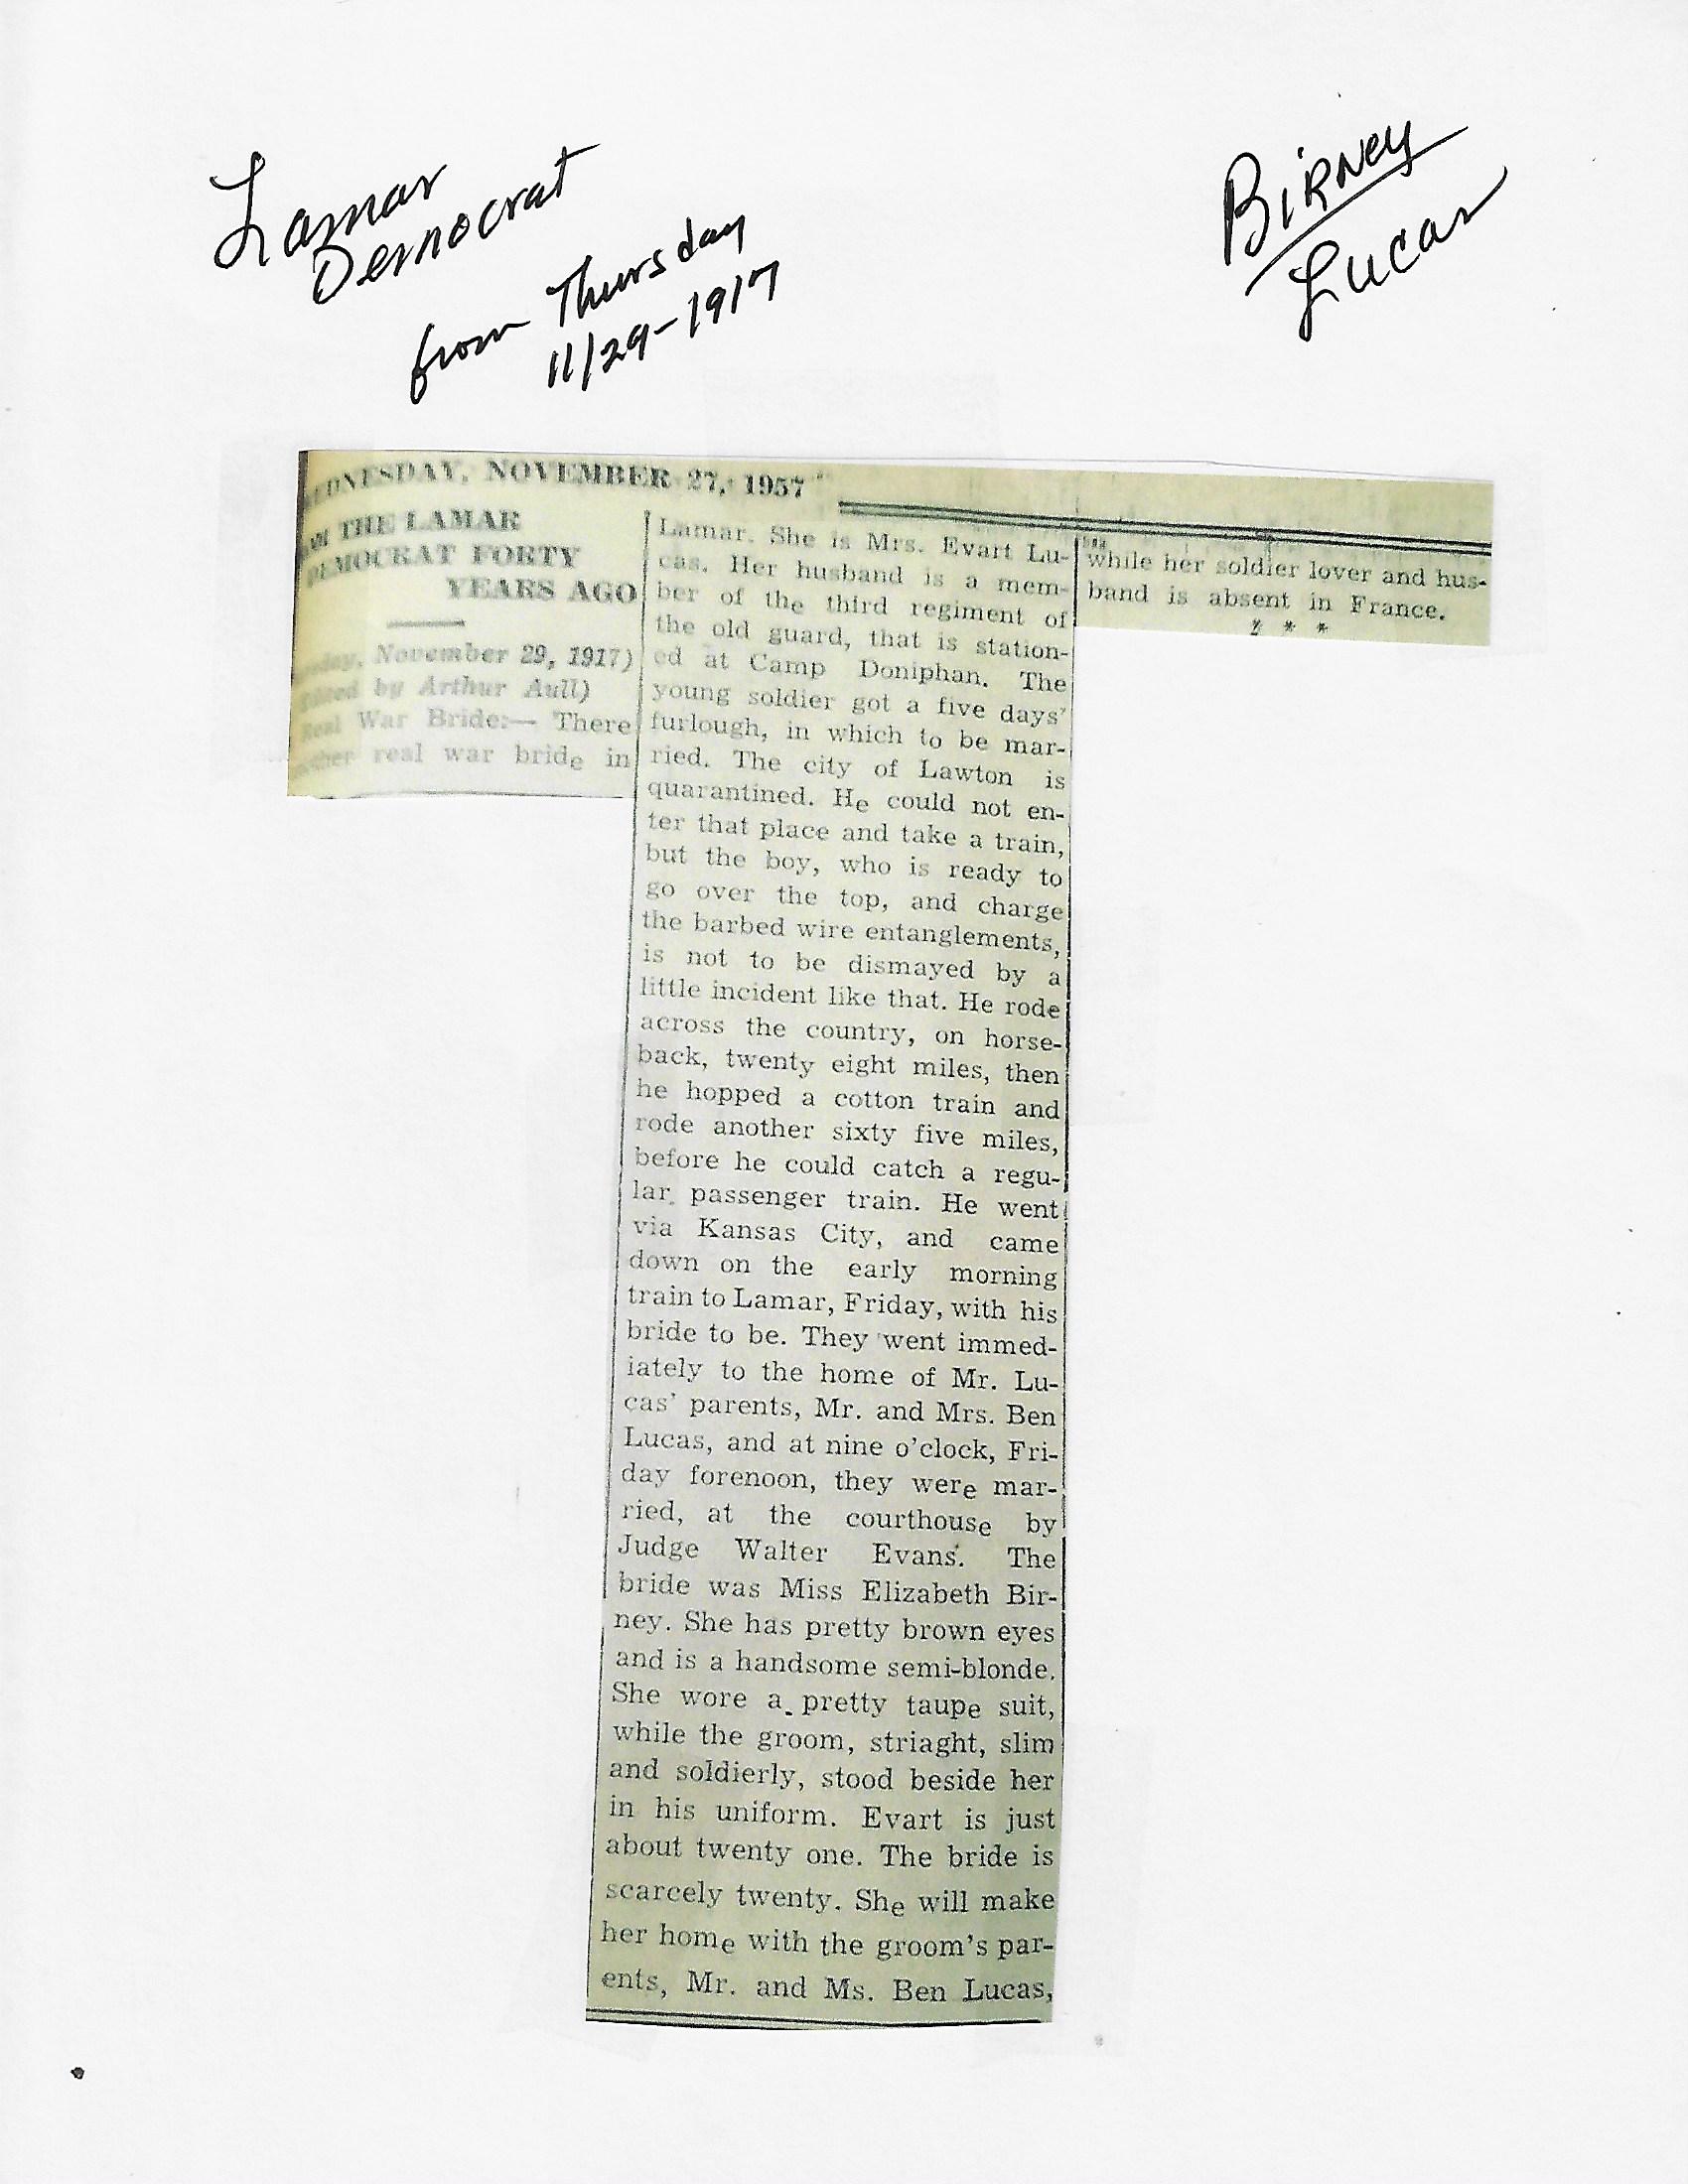 Lamar
Democrat
from Thursday
11/29-1917
Birney
Lucas
WEDNESDAY, NOVEMBER 27, 1957
THE LAMAR
DEMOCRAT FORTY
YEARS AGO
November 29, 1917)
by Arthur Aull)
Real War Bride:— There
real war bride in
Lamar. She is Mrs. Evart Lu-
cas. Her husband is a mem-
ber of the third regiment of
the old guard, that is station-
ed at Camp Doniphan. The
young soldier got a five days'
furlough, in which to be mar-
ried. The city of Lawton is
quarantined. He could not en-
ter that place and take a train,
but the boy, who is ready to
go over the top, and charge
the barbed wire entanglements,
is not to be dismayed by a
little incident like that. He rode
across the country, on horse-
back, twenty eight miles, then
he hopped a cotton train and
rode another sixty five miles,
before he could catch a regu-
lar passenger train. He went
via Kansas City, and came
down on the early morning
train to Lamar, Friday, with his
bride to be. They went immed-
iately to the home of Mr. Lu-
cas' parents, Mr. and Mrs. Ben
Lucas, and at nine o'clock, Fri-
day forenoon, they were mar-
ried, at the courthouse by
Judge Walter Evans. The
bride was Miss Elizabeth Bir-
ney. She has pretty brown eyes
and is a handsome semi-blonde.
She wore a pretty taupe suit,
while the groom, striaght, slim
and soldierly, stood beside her
in his uniform. Evart is just
about twenty one. The bride is
scarcely twenty. She will make
her home with the groom's par-
ents, Mr. and Ms. Ben Lucas,
while her soldier lover and hus-
band is absent in France.
* * *